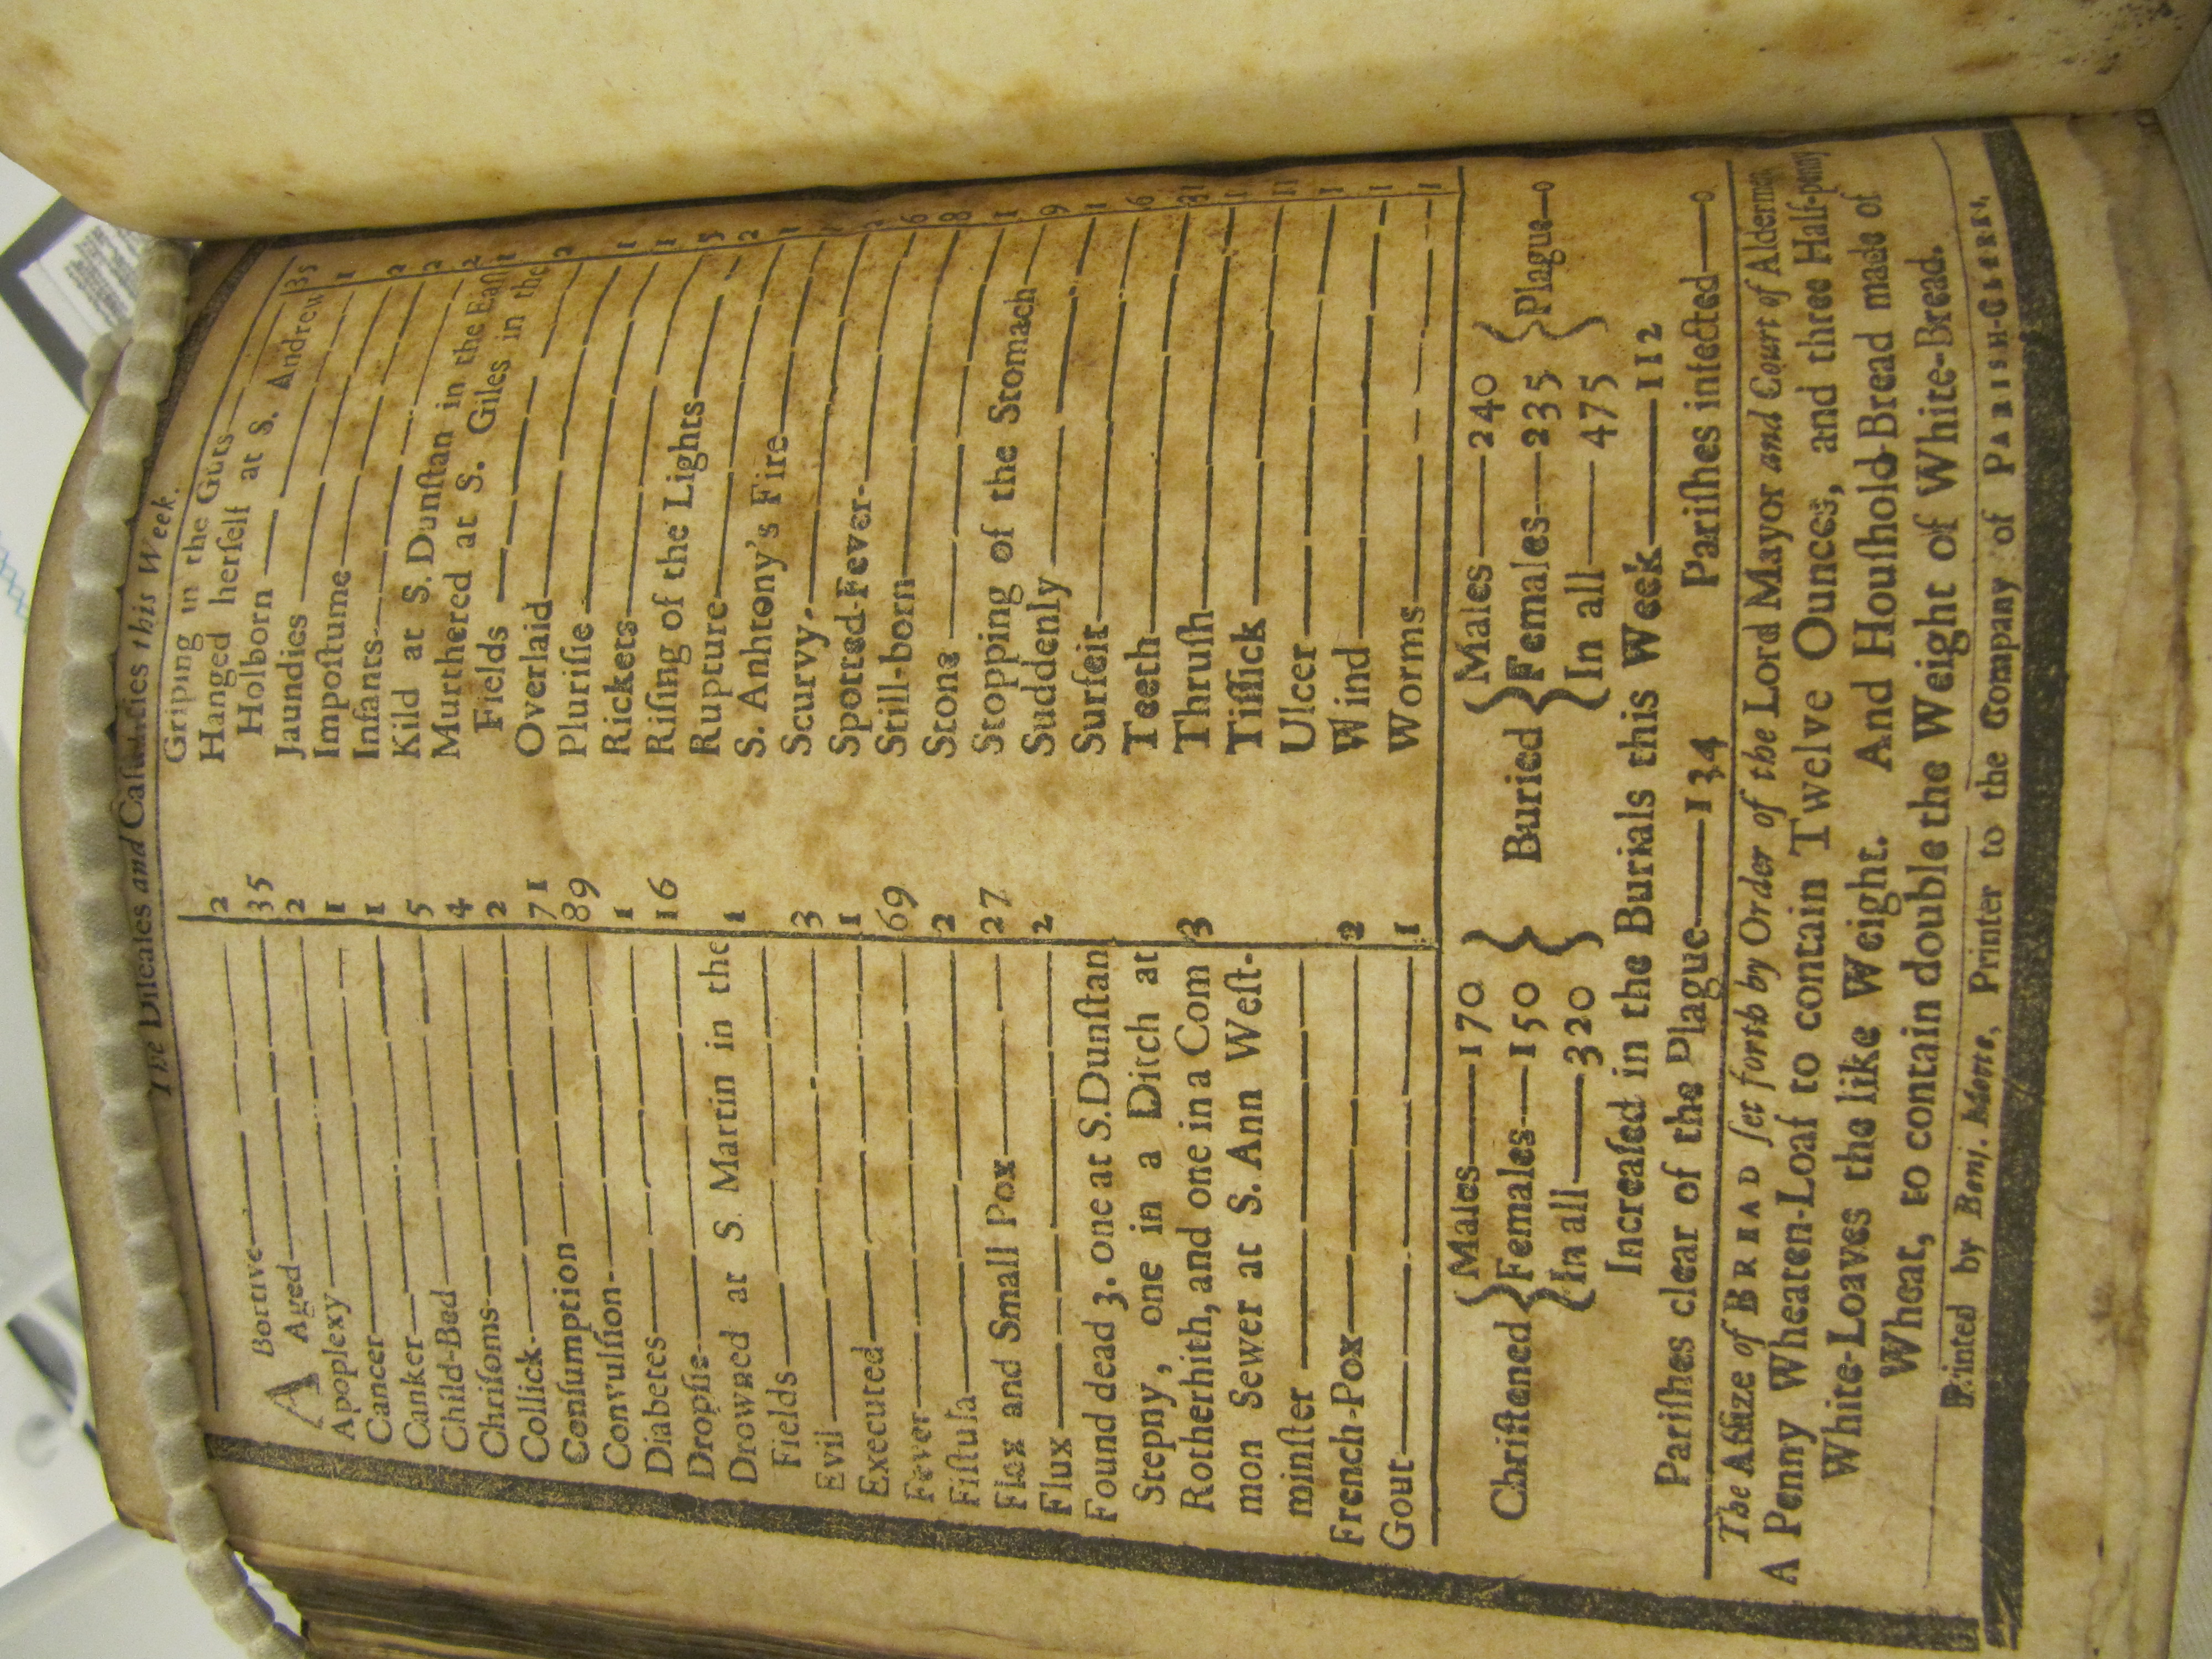 The Diseases and Casualties this Week.
A Bortive 2
Aged 35
Apoplexy 2
Cancer 1
Canker 1
Child-Bed 5
Chrisoms 4
Collick 2
Conſumption 71
Convulſion 89
Diabetes 1
Dropſie 16
Drowned at S. Martin in the
Fields 1
Evil 3
Executed 1
Fever 69
Fiſtula 2
Flox and Small Pox 27
Flux 2
Found dead 3. one at S. Dunſtan
Stepny, one in a Ditch at
Rotherhith, and one in a Com
mon Sewer at S. Ann Weſt-
minſter 3
French-Pox 2
Gout 1
Griping in the Guts 35
Hanged herſelf at S. Andrew
Holborn 1
Jaundies 2
Impoſtume 2
Infants 2
Kild at S. Dunſtan in the Eaſt 1
Murthered at S. Giles in the
Fields 2
Overlaid 1
Pluriſie 1
Rickets 5
Riſing of the Lights 2
Rupture 1
S. Anhtony's Fire 1
Scurvy
Spotted-Fever 6
Still-born 8
Stone 1
Stopping of the Stomach 9
Suddenly 1
Surfeit 6
Teeth 31
Thruſh 1
Tiſſick 11
Ulcer 1
Wind 1
Worms 1
Chriſtened { Males—170 Females—150 In all—320 }
Buried { Males—240 Females—235 In all—475 } Plague—0
Increaſed in the Burials this Week—112
Pariſhes clear of the Plague—134 Pariſhes infected—0
The Aſſize of BREAD ſet forth by Order of the Lord Mayor and Court of Aldermen
A Penny Wheaten-Loaf to contain Twelve Ounces, and three Half-penny
White-Loaves the like Weight. And Houſhold-Bread made of
Wheat, to contain double the Weight of White-Bread.
Printed by Benj. Motte, Printer to the Company of PARISH-CLERKS.